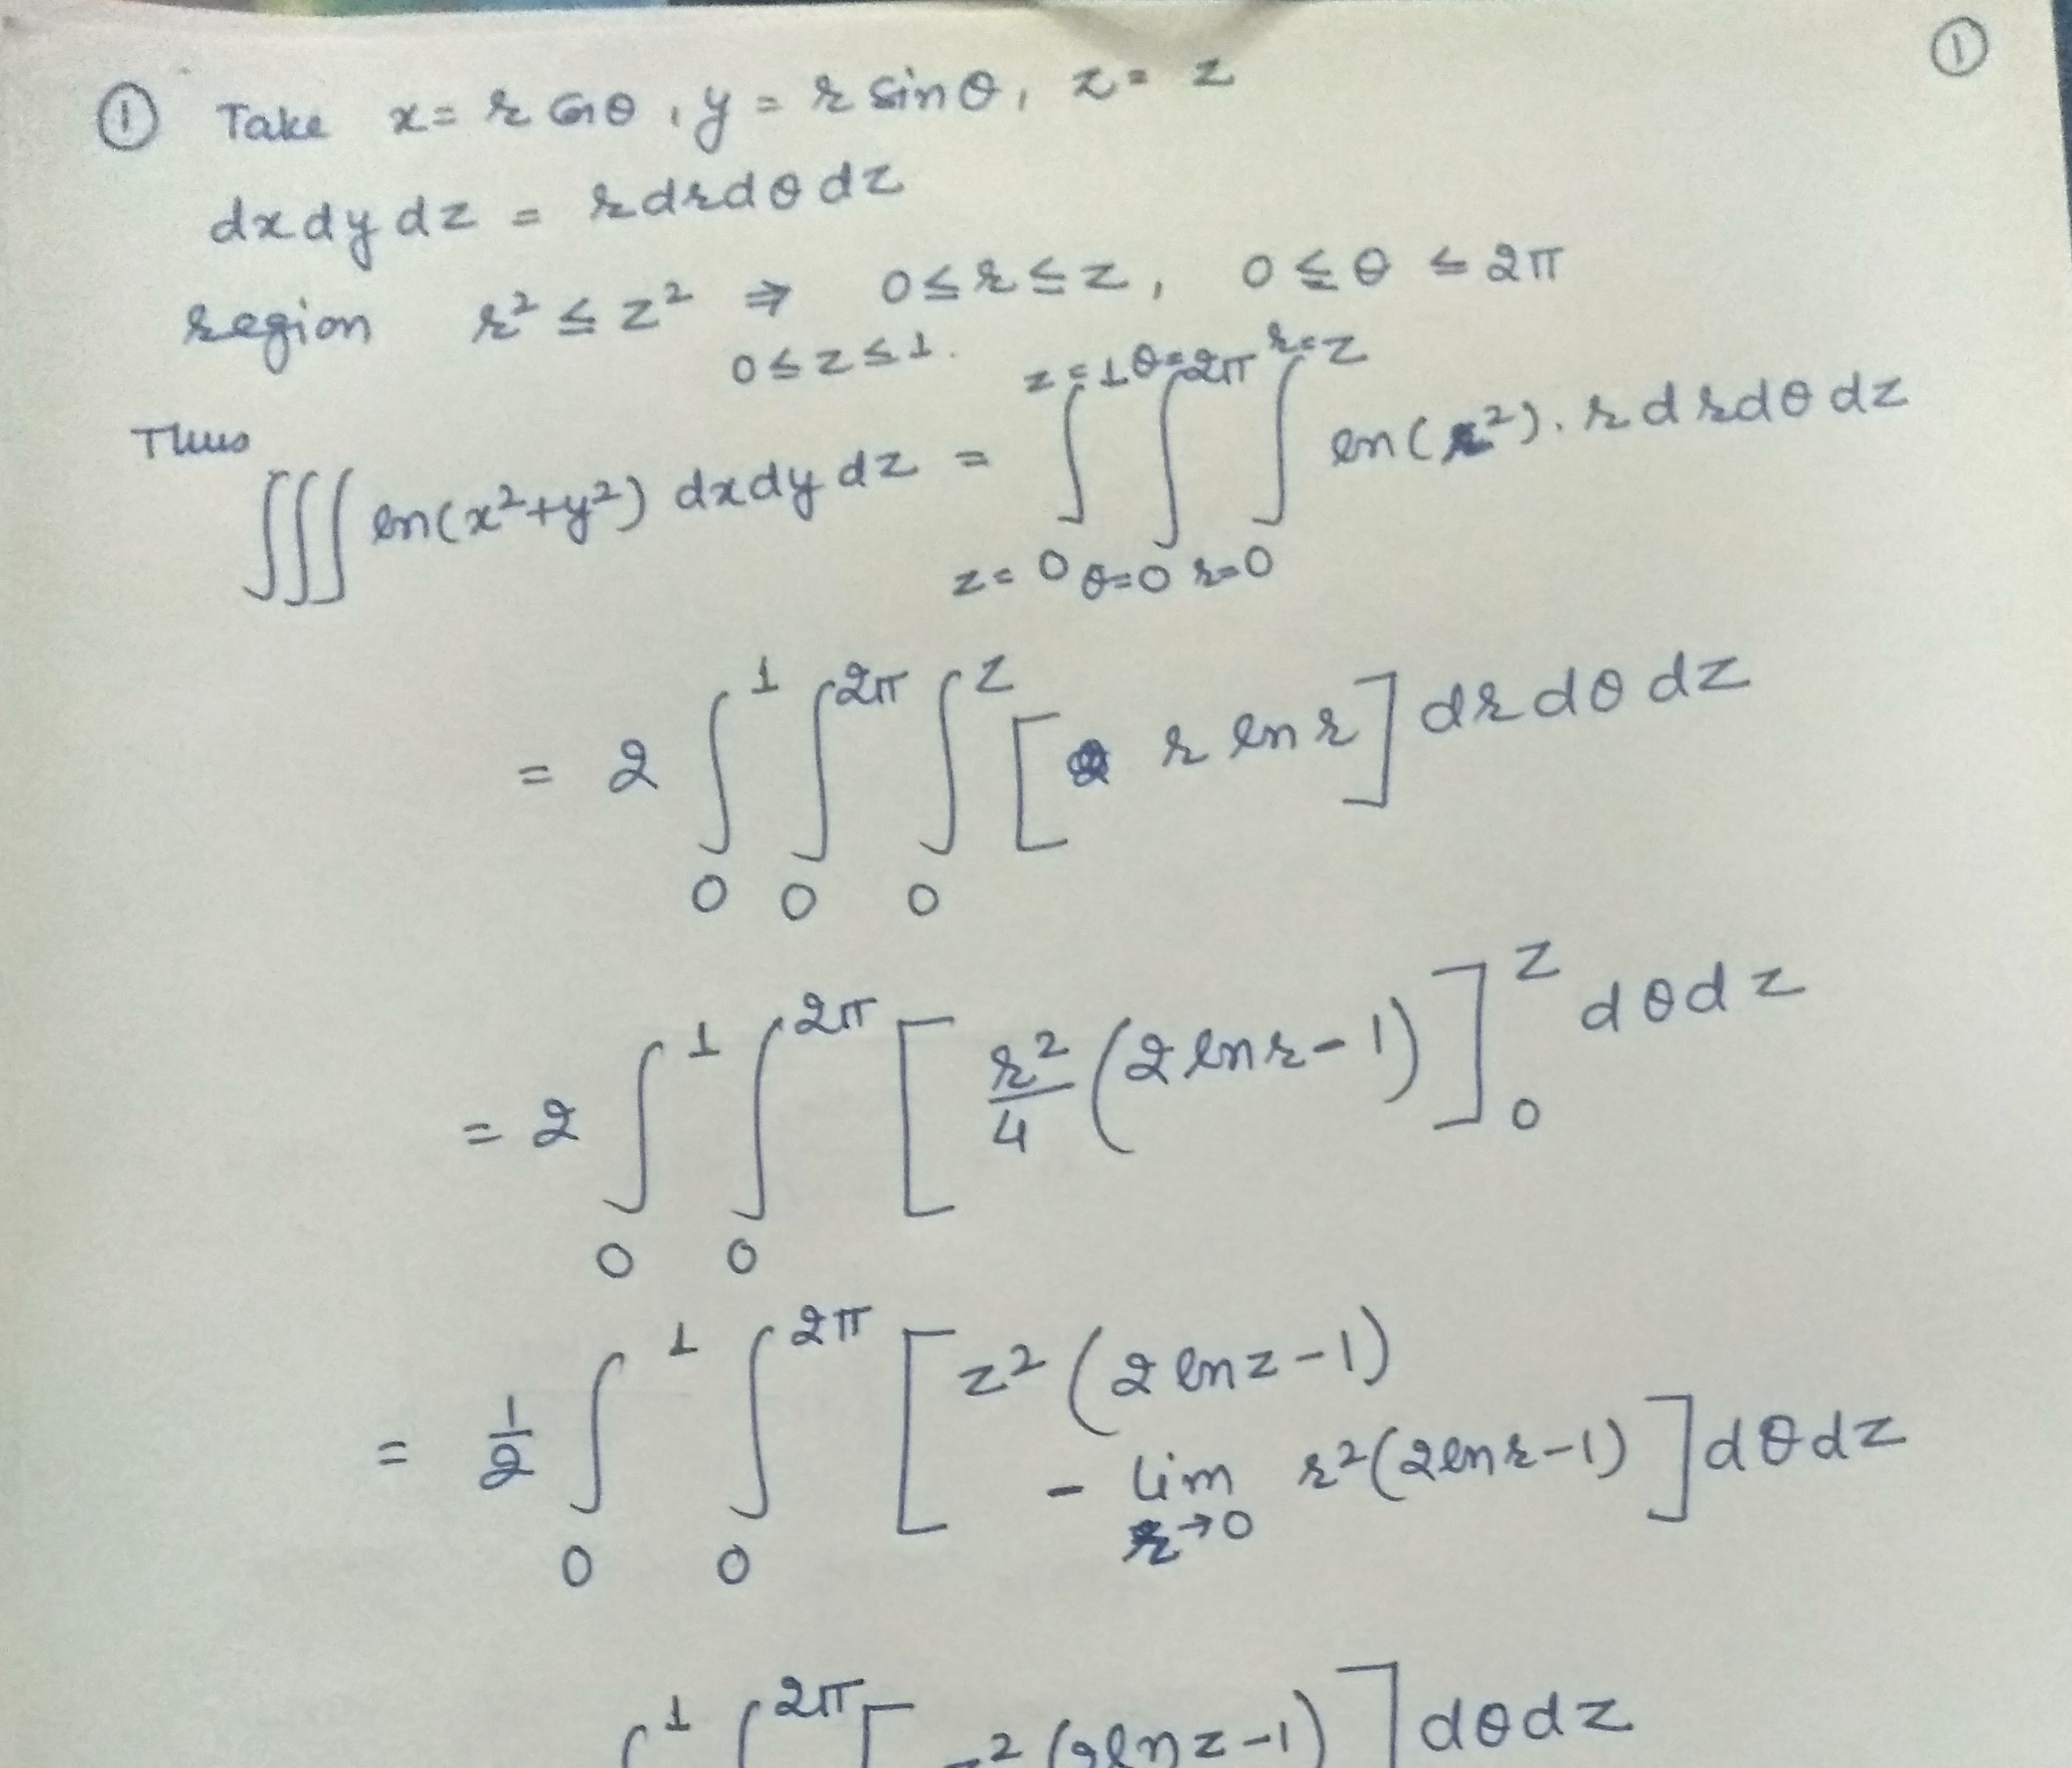 ①
① Take x = r cosθ, y = r sinθ, z = z
dxdydz = rdrdθdz
region r² ≤ z² ⇒ 0≤r≤z, 0≤θ≤2π
0≤z≤1.
Thus
∭ ln(x²+y²) dxdydz = ∫_{z=0}^{z=1} ∫_{θ=0}^{θ=2π} ∫_{r=0}^{r=z} ln(r²). r dr dθ dz
= 2 ∫_0^1 ∫_0^{2π} ∫_0^z [r ln r] dr dθ dz
= 2 ∫_0^1 ∫_0^{2π} [r²/4 (2 ln r - 1)]_0^z dθdz
= 1/2 ∫_0^1 ∫_0^{2π} [z² (2 ln z - 1)
- lim_{r→0} r²(2 ln r - 1)] dθdz
∫^1 ∫^{2π} [z² (2 ln z - 1)] dθdz